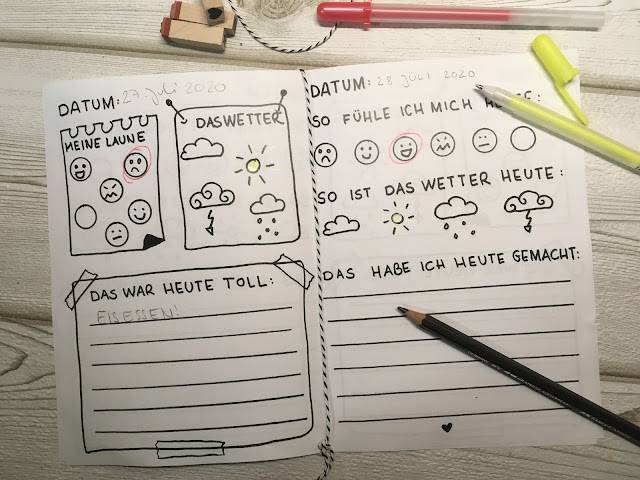 DATUM: 27. Juli 2020
MEINE LAUNE
DAS WETTER
DAS WAR HEUTE TOLL:
EISESSEN!
DATUM: 28 JULI 2020
SO FÜHLE ICH MICH HEUTE:
SO IST DAS WETTER HEUTE:
DAS HABE ICH HEUTE GEMACHT: